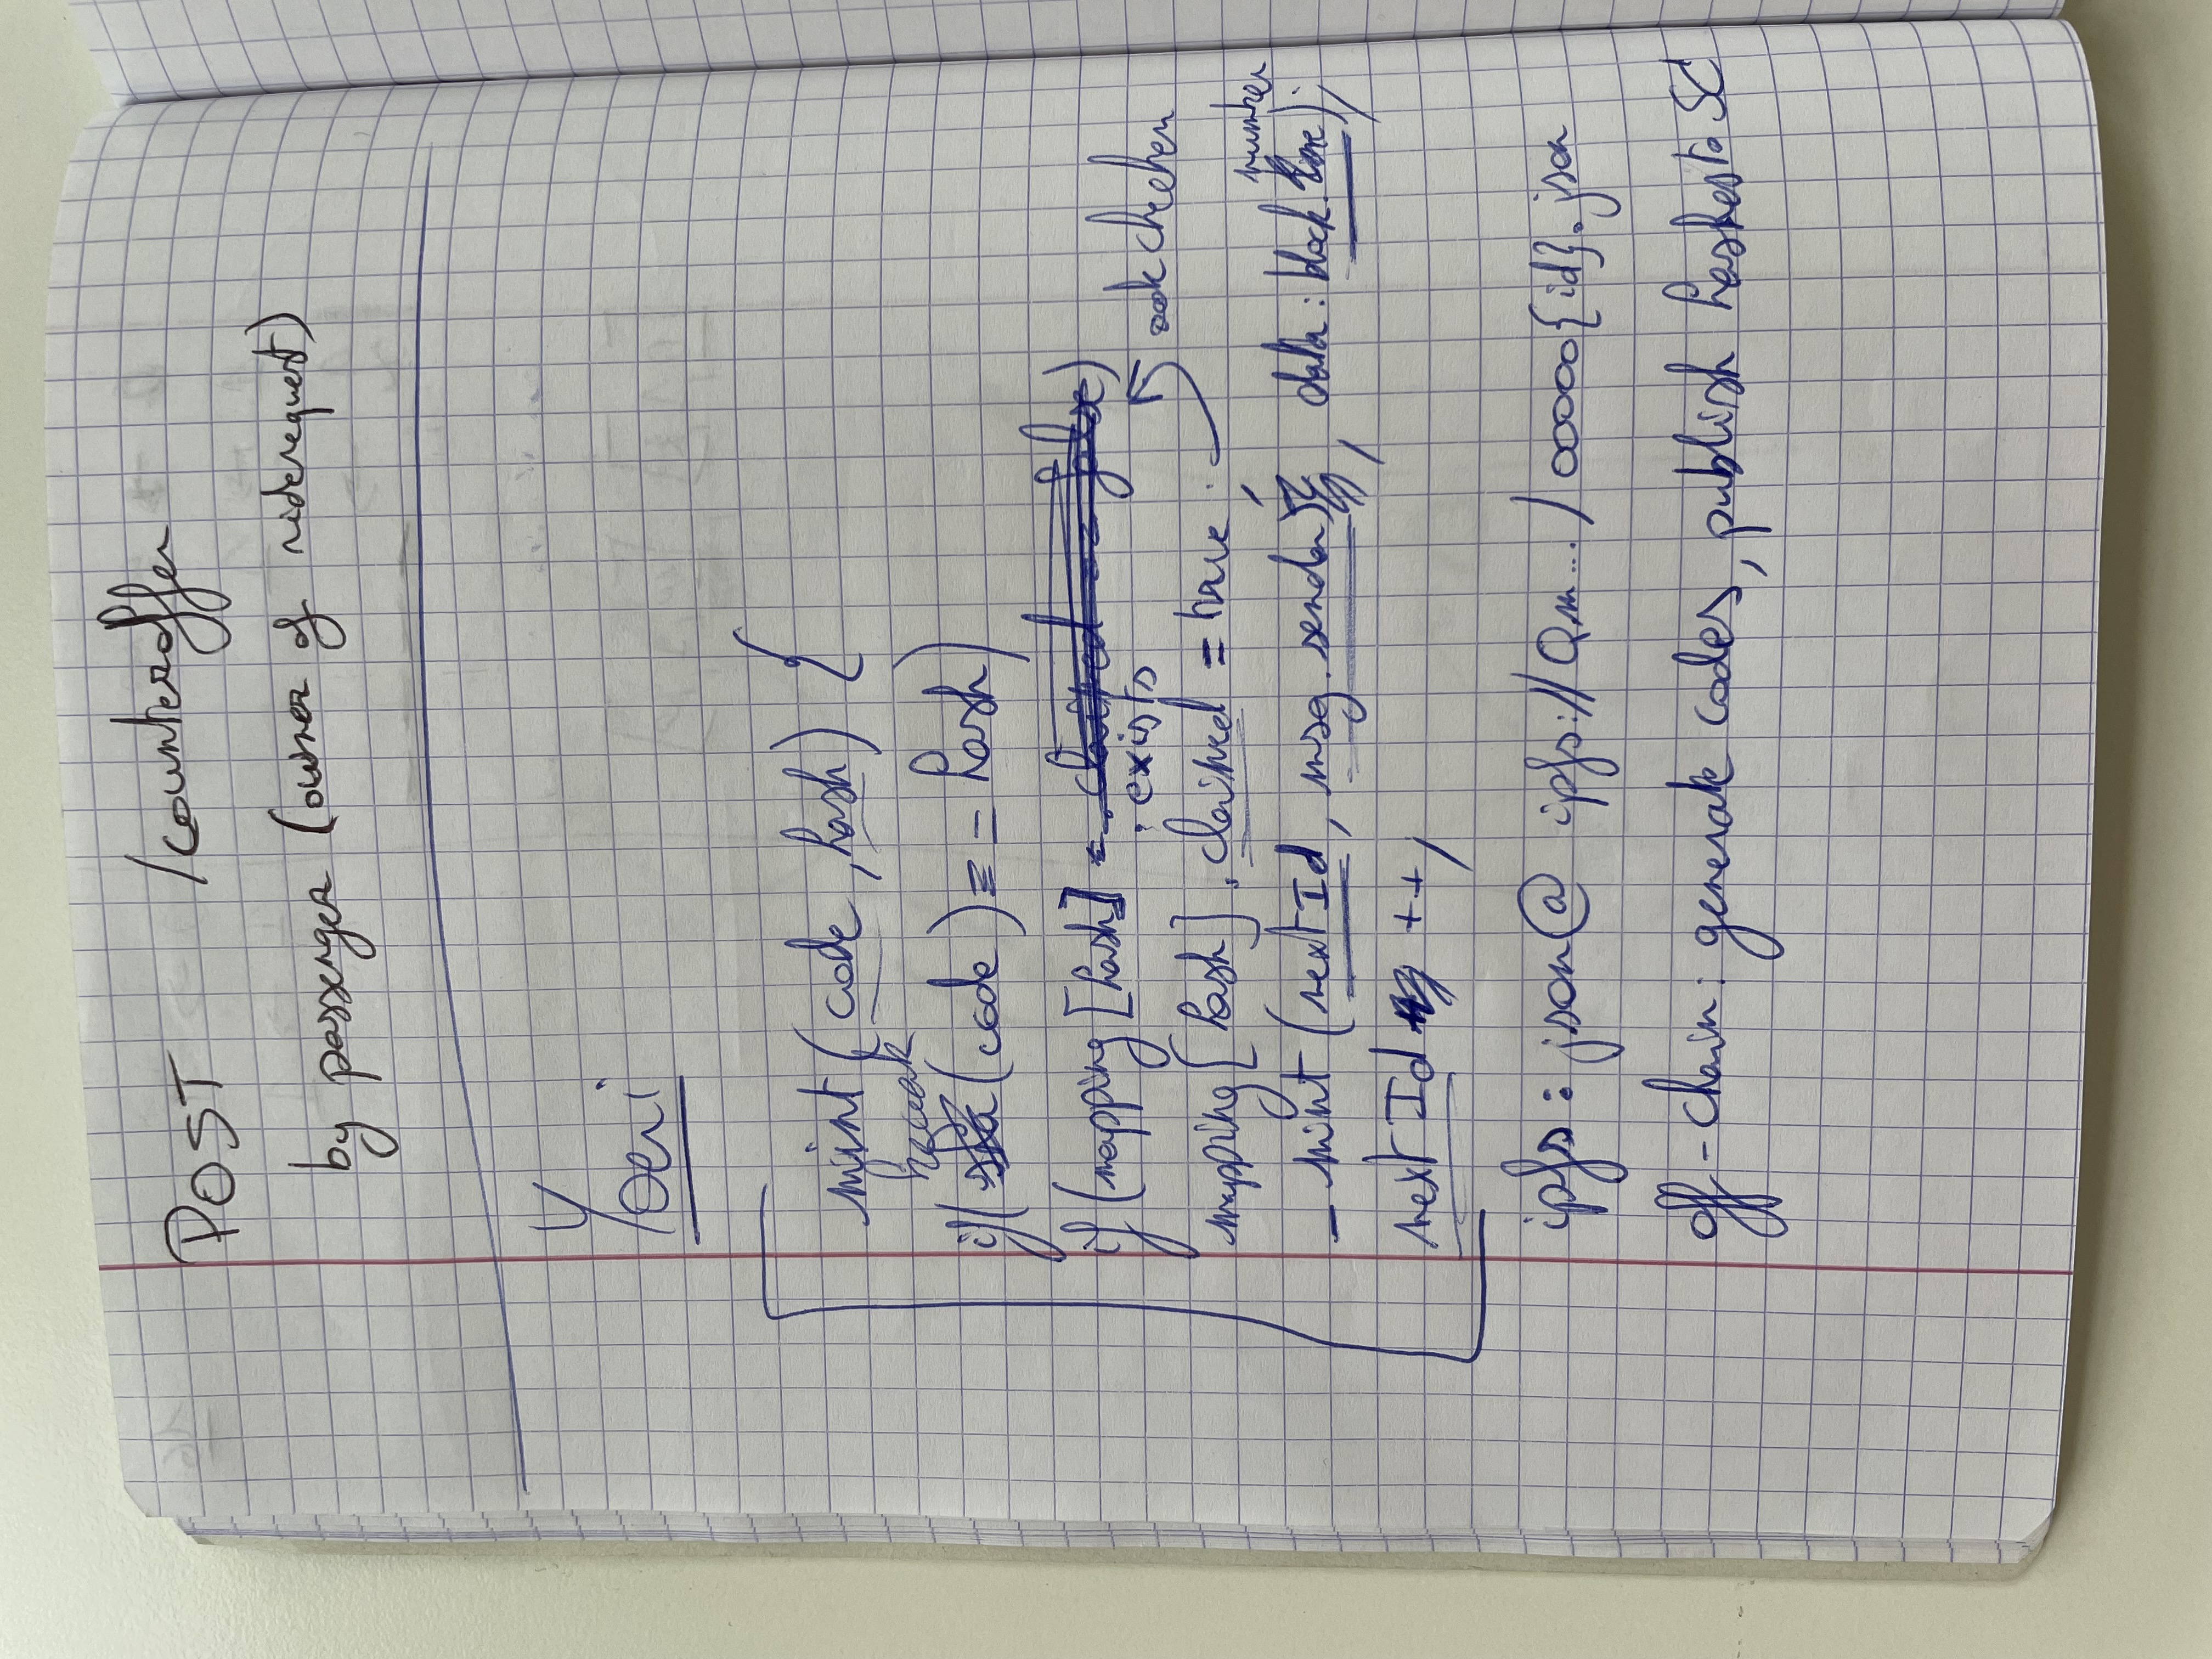 POST /counteroffer
by passenger (owner of riderequest)
Yoeri
mint (code, hash) {
kecak
if( sha (code) == hash)
if (mapping [hash] = .claimed == false)
.exists
ook checken
mapping [hash] .claimed = true ;
number
_mint (nextId, msg.sender, data: block.time);
nextId ++;
ipfs: json @ ipfs://Qm.../00000{id}.json
off-chain: generate codes, publish hashes to SC